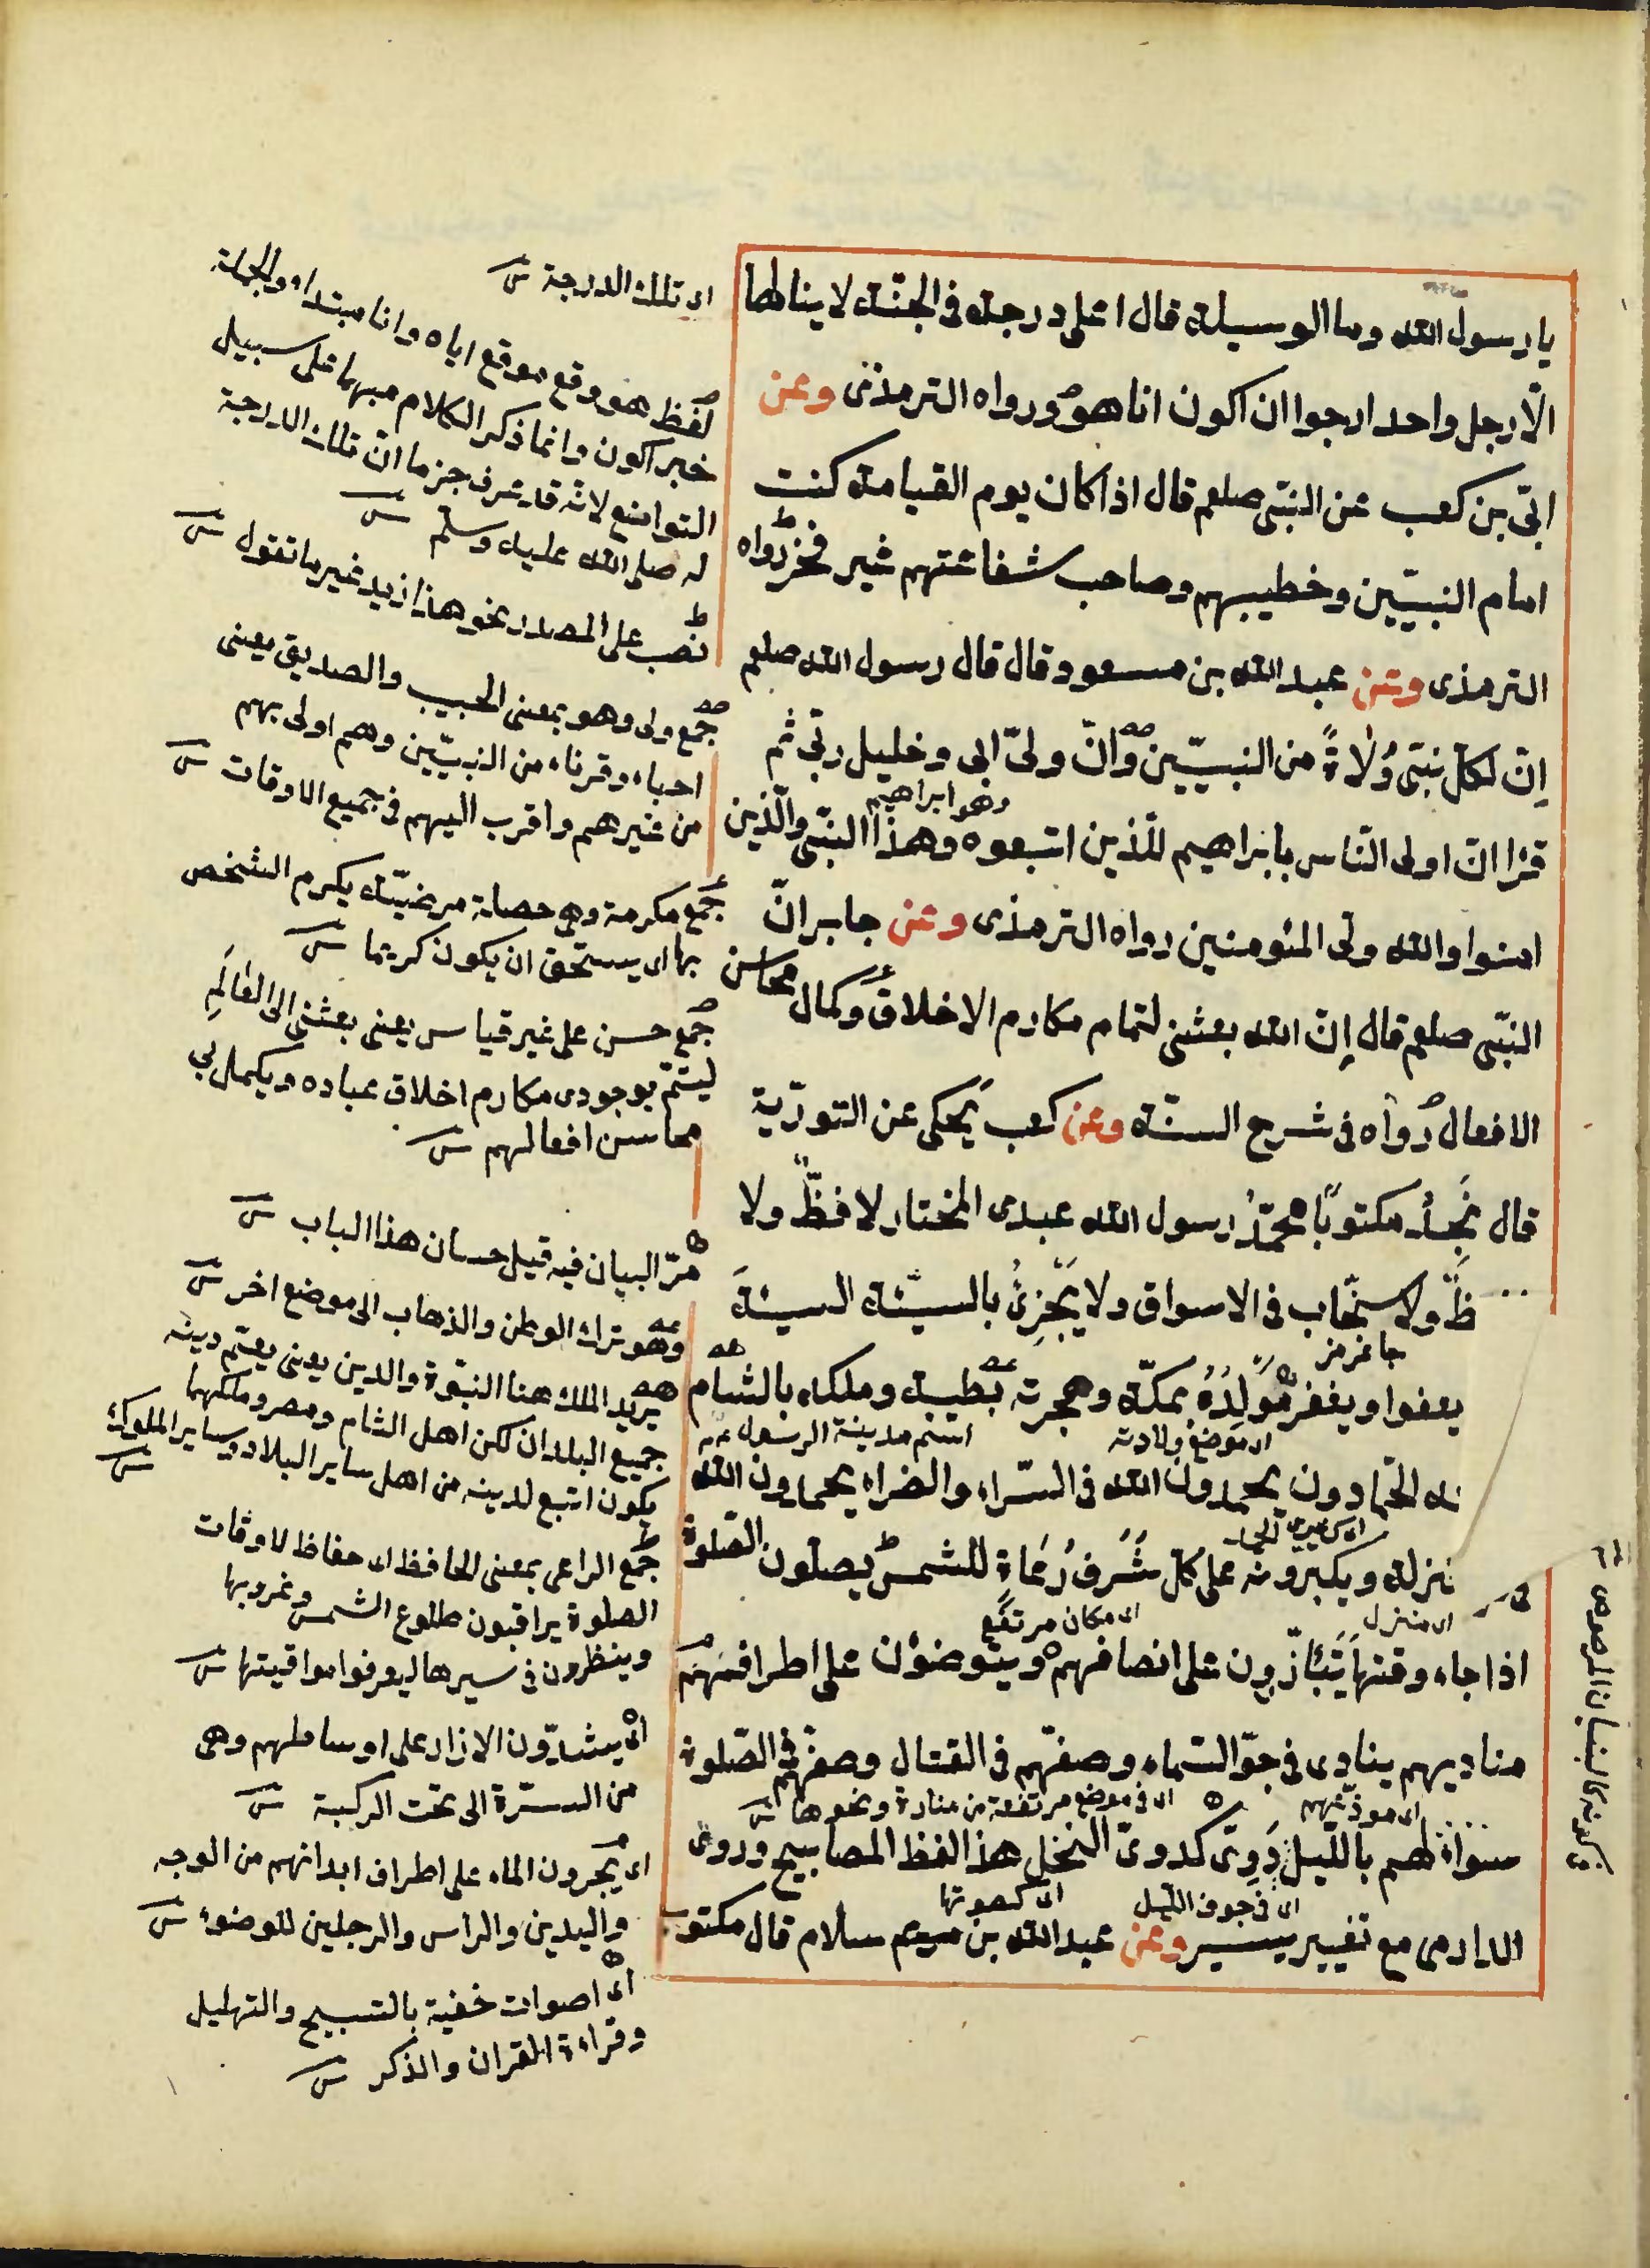 يا رسول الله وما الوسيلة قال اعلى درجة في الجنة لا ينالها
الّا رجل واحد ارجوا ان اكون انا هو ورواه الترمذى وعن
ابّى بن كعب عن النبّى صلعم قال اذا كان يوم القيامة كنت
امام النبيّين وخطيبهم وصاحب شفاعتهم غير فخر رواه
الترمذى وعن عبد الله بن مسعود قال قال رسول الله صلعم
اِنّ لكلّ نبّى وُلاةً من النبيّين وانّ وليّ ابى وخليل ربّى ثم
وهو ابراهيم
قرا انّ اولى النّاس بابراهيم للّذين اتبعوه وهذا النبّى والّذين
امنوا والله ولى المئومنين رواه الترمذى وعن جابر انّ
النبّى صلعم قال اِنّ الله بعثنى لتمام مكارم الاخلاق وكمال محاسن
الافعال رواه فى شرح السنّة وعن كعب يَحكى عن التورٰية
قال نَجِدُ مكتوبًا محمّدٌ رسول الله عبدى المختار لا فظّ ولا
ظٌ ولا سخّاب فى الاسواق ولا يَجْزِئُ بالسيئة السيئة
يعفوا ويغفر مَولِدُهُ بمكّة وهجرته بطيبة وملكه بالشام
اى موضع ولادته
اسم مدينة الرسول
ته الحمّادون يحمدون الله فى السّراء والضراء يحمدون الله
نزلة ويكبرونه على كلّ شَرَف رُعَاة للشمس يصلون الصّلوة
اى منزل
اى مكان مرتفع
اذا جاء وقتها يَتَئازّرون على انصافهم ويتوضؤن على اطرافهم
مناديهم ينادى فى جوّ السّماء وصفّهم فى القتال وصفّهم فى الصّلوة
اى موذّنهم
اى فى موضع مرتفعة من منارة ونحوها
سواءٌ لهم بالليل دَوِىّ كدوىّ النخل هذا لفظ المصابيح وروى
اى فى جوف اللّيل
اى كصوتها
الدارمى مع تغيير يسير وعن عبد الله بن سلام قال مكتوب
اى تلك الدرجة
لفظ هو وقع موقع اياه وانا مبتداء والجملة
خبر اكون وانما ذكر الكلام مبهما على سبيل
التواضع لانّه قد عرف جزما انّ تلك الدرجة
له صلى الله عليه وسلّم
نصب على المصدر نحو هذا زيد غير ما تقول
جمع ولى وهو بمعنى الحبيب والصديق يعنى
احباء وقرناء من النبيّين وهم اولى بهم
من غيرهم واقرب اليهم فى جميع الاوقات
جمع مكرمة وهى خصلة مرضيّة يكرم الشخص
بها اى يستحق ان يكون كريما
جمع حسن على غير قياس يعنى بعثنى الى العٰالَمِ
ليتمّ بوجودى مكارم اخلاق عباده ويكمل بى
محاسن افعالهم
مرّ البيان فيه قيل حسان هذا الباب
وهو ترك الوطن والذهاب الى موضع اخر
يريد الملك هنا النبوّة والدين يعنى يعمّ دينه
جميع البلدان لكن اهل الشام ومصر وملكهما
يكون اتبع لدينه من اهل ساير البلاد وساير الملوك
جمع الراعى بمعنى الحافظ اى حفاظ لاوقات
الصلوة يراقبون طلوع الشمس وغروبها
وينظرون فى سيرها ليعرفوا مواقيتها
اى يشدّون الازار على اوساطهم وهى
من السّرّة الى تحت الركبة
اى يجرون الماء على اطراف ابدانهم من الوجه
واليدين والراس والرجلين للوضوء
اى اصوات خفية بالتسبيح والتهليل
وقراءة القران والذكر